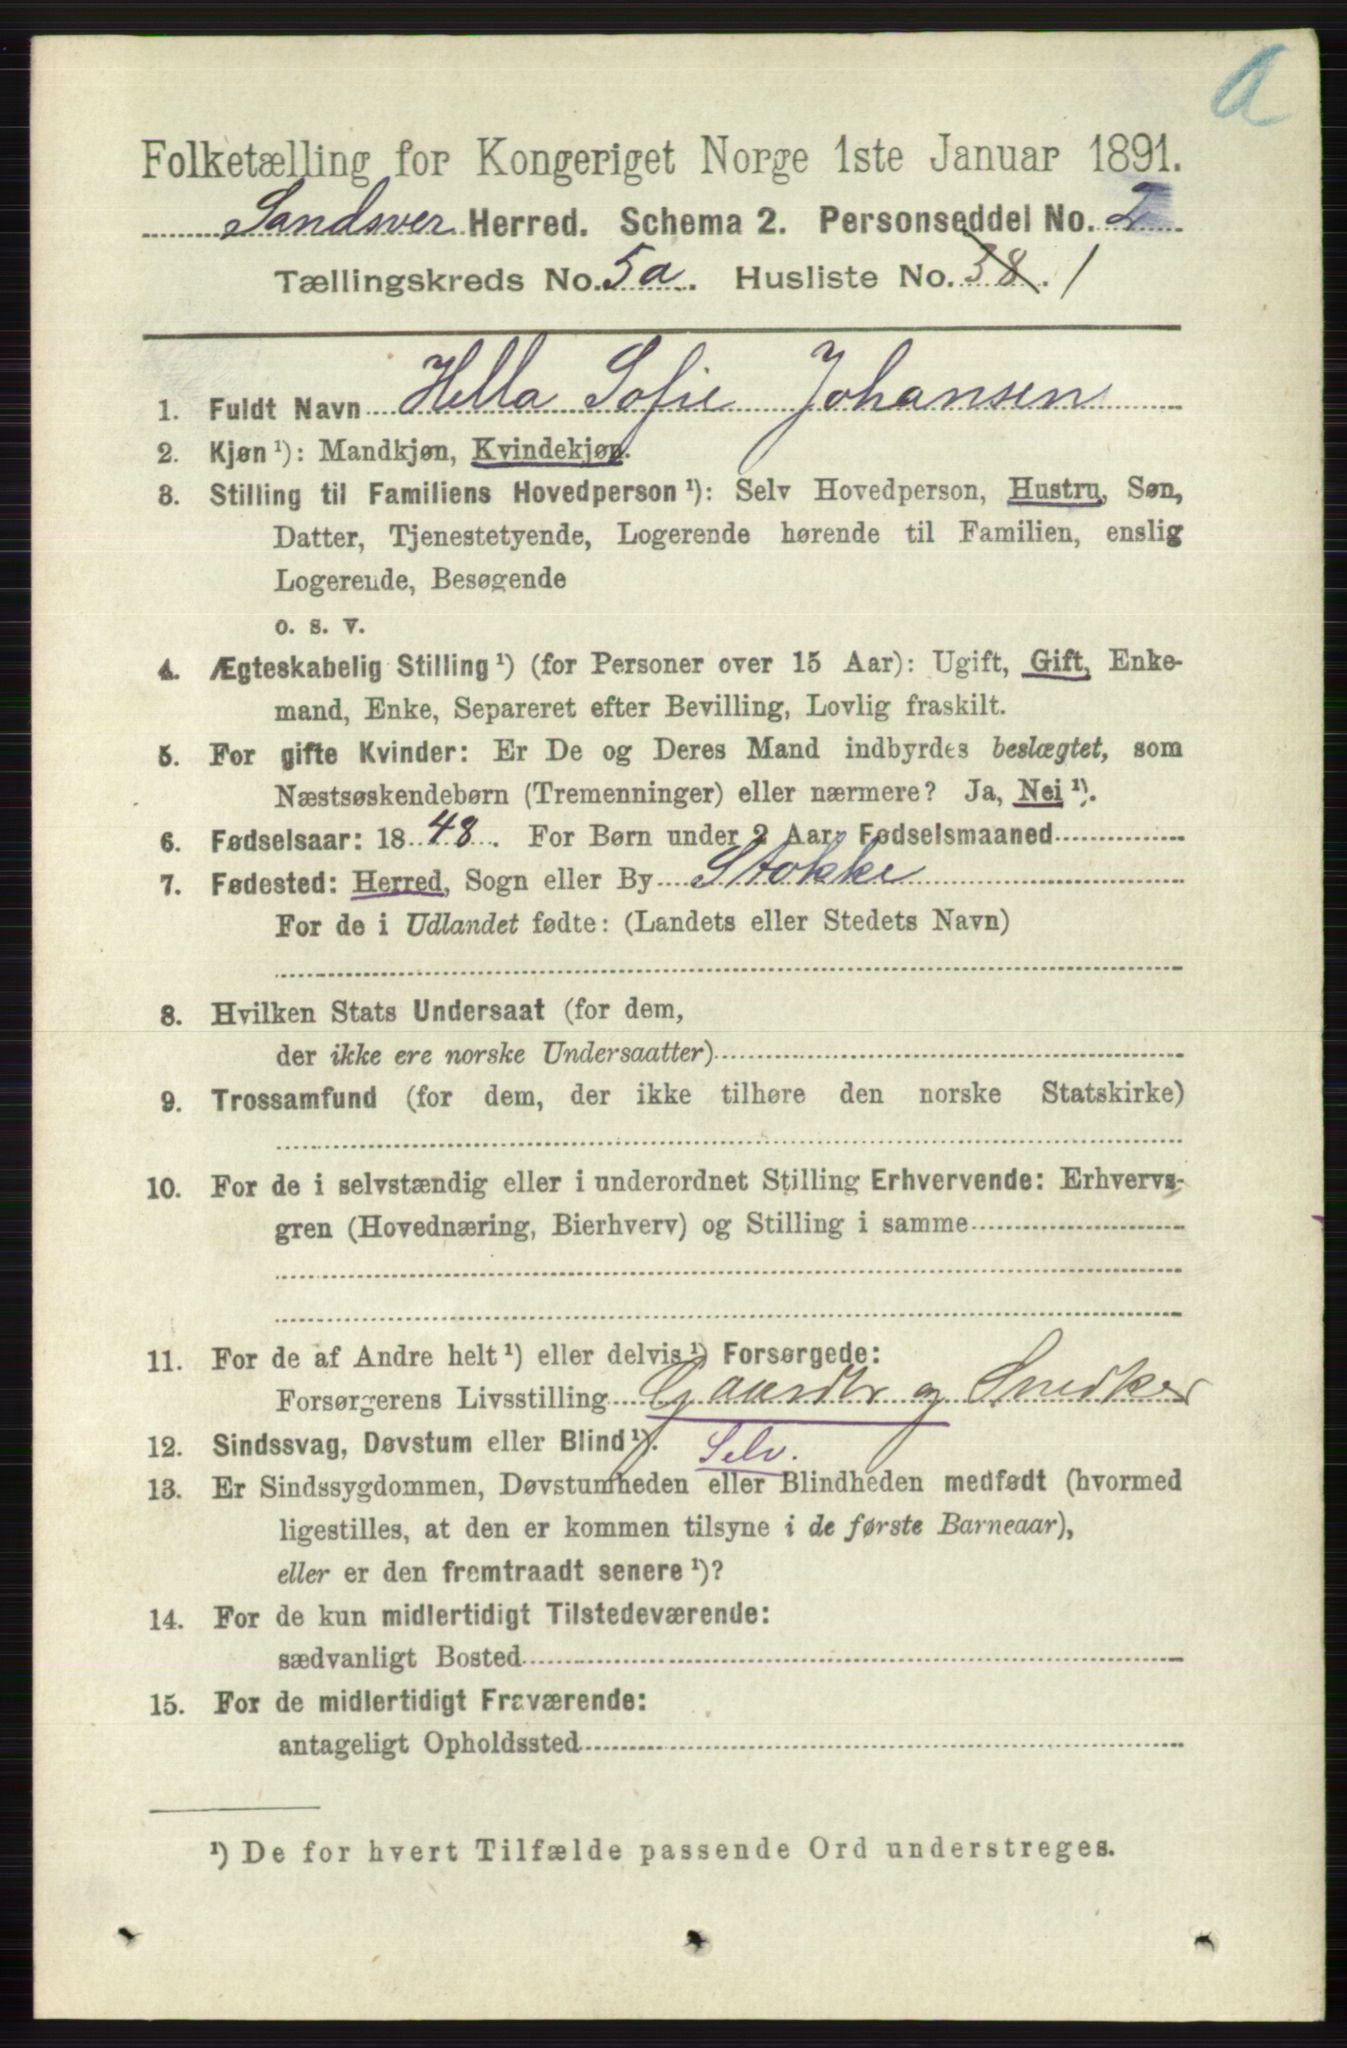 a
Folketælling for Kongeriget Norge 1ste Januar 1891.
Sandsver Herred. Schema 2. Personseddel No. 2
Tællingskreds No. 5a. Husliste No. 38. 1
1. Fuldt Navn Hella Sofie Johansen
2. Kjøn ¹): Mandkjøn, Kvindekjøn.
3. Stilling til Familiens Hovedperson ¹): Selv Hovedperson, Hustru, Søn,
Datter, Tjenestetyende, Logerende hørende til Familien, enslig
Logerende, Besøgende
o. s. v.
4. Ægteskabelig Stilling ¹) (for Personer over 15 Aar): Ugift, Gift, Enke-
mand, Enke, Separeret efter Bevilling, Lovlig fraskilt.
5. For gifte Kvinder: Er De og Deres Mand indbyrdes beslægtet, som
Næstsøskendebørn (Tremenninger) eller nærmere? Ja, Nei ¹).
6. Fødselsaar: 1848. For Børn under 2 Aar: Fødselsmaaned
7. Fødested: Herred, Sogn eller By Stokke
For de i Udlandet fødte: (Landets eller Stedets Navn)
8. Hvilken Stats Undersaat (for dem,
der ikke ere norske Undersaatter)
9. Trossamfund (for dem, der ikke tilhøre den norske Statskirke)
10. For de i selvstændig eller i underordnet Stilling Erhvervende: Erhvervs-
gren (Hovednæring, Bierhverv) og Stilling i samme
11. For de af Andre helt ¹) eller delvis ¹) Forsørgede:
Forsørgerens Livsstilling Gaardbr og Snedker
12. Sindssvag, Døvstum eller Blind ¹). Selv.
13. Er Sindssygdommen, Døvstumheden eller Blindheden medfødt (hvormed
ligestilles, at den er kommen tilsyne i de første Barneaar),
eller er den fremtraadt senere ¹)?
14. For de kun midlertidigt Tilstedeværende:
sædvanligt Bosted
15. For de midlertidigt Fraværende:
antageligt Opholdssted
¹) De for hvert Tilfælde passende Ord understreges.